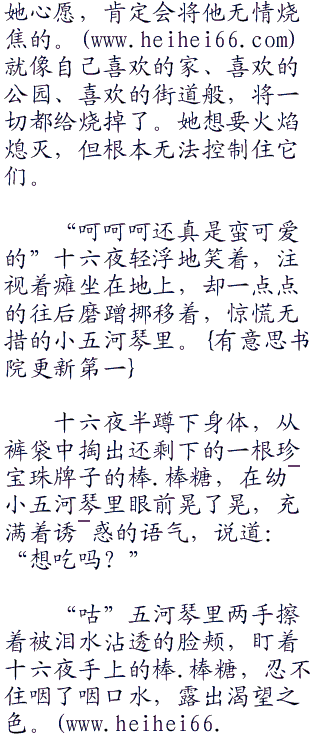 她心愿，肯定会将他无情烧
焦的。(www.heihei66.com)
就像自己喜欢的家、喜欢的
公园、喜欢的街道般，将一
切都给烧掉了。她想要火焰
熄灭，但根本无法控制住它
们。
“呵呵呵还真是蛮可爱
的”十六夜轻浮地笑着，注
视着瘫坐在地上，却一点点
的往后磨蹭挪移着，惊慌无
措的小五河琴里。{有意思书
院更新第一}
十六夜半蹲下身体，从
裤袋中掏出还剩下的一根珍
宝珠牌子的棒.棒糖，在幼¯
小五河琴里眼前晃了晃，充
满着诱¯惑的语气，说道：
“想吃吗？”
“咕”五河琴里两手擦
着被泪水沾透的脸颊，盯着
十六夜手上的棒.棒糖，忍不
住咽了咽口水，露出渴望之
色。(www.heihei66.